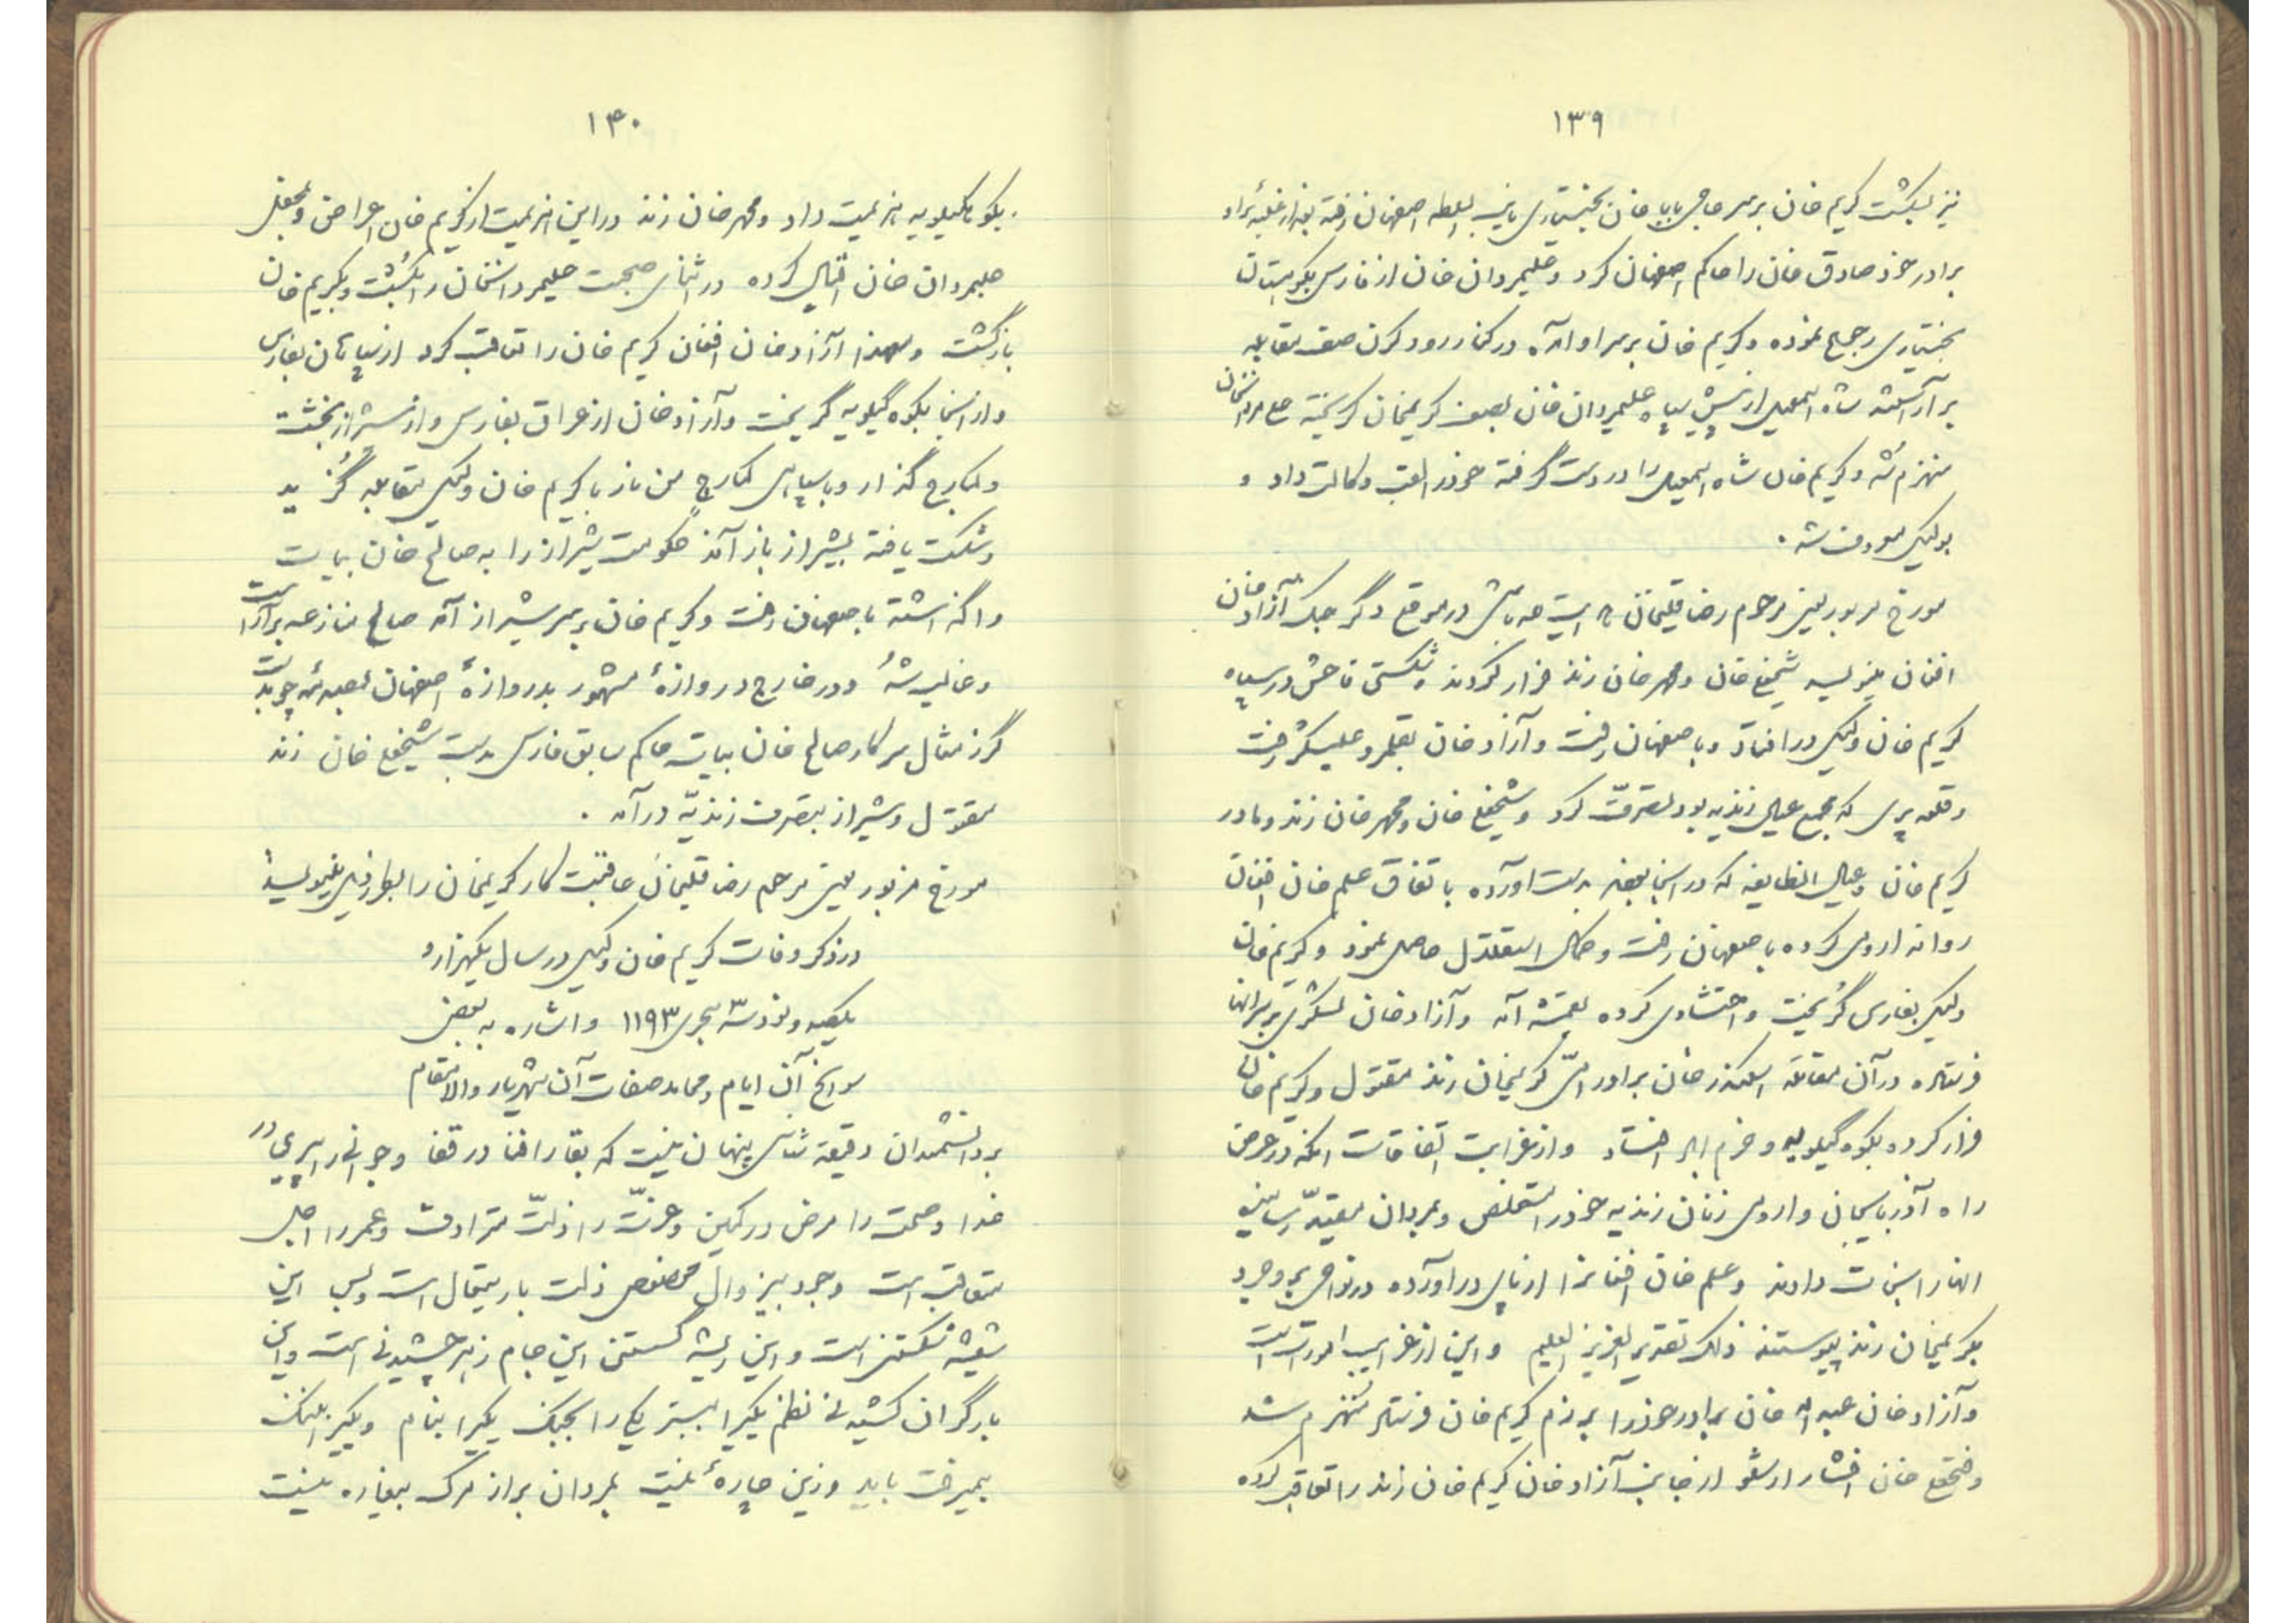 ۱۳۹
نیز بکشت کریم خان بر سر حاجی بابا خان بختیاری نایب السلطه اصفهان رفته بعد از غلبه برا و
برادر خود صادق خان را حاکم اصفهان کرد و علیمردان خان از فارس بکوهستان
بختیاری رجوع نموده و کریم خان بر سر او آمده در کنار رود کرن صف مقابله
بر آراسته شاه اسمعیل از پیش سپاه علیمردان خان بصف کریمخان گریخته علیمردانخان
منهزم شد و کریم خان شاه اسمعیل را در دست گرفته خود را لقب وکالت داد و
بوکیل معروف شد .
مورخ مزبور یعنی مرحوم رضا قلیخان در موقع دگر جنک آزاد خان
افغان مینویسد شیخعلی خان و محمد خان زند فرار کردند و شکستی فاحش در سپاه
کریم خان وکیل در افتاد و باصفهان رفت و آزاد خان بقلمرو علیشکر رفت
و قلعه پری که مجمع عیال زندیه بود تصرف کرد و شیخعلی خان و محمد خان زند و مادر
کریم خان و عیال انطایفه که در اینجا بودند بدست اورده با تفاق علم خان افغان
روانه ارومی کرده باصفهان رفت و کمال استقلال حاصل نمود و کریم خان
وکیل بفارس گریخت و احتشادی کرده بقمشه آمد و آزاد خان لشکری بر سر انها
فرستاده در آن مقاتله اسکندر خان برادر امی کریمخان زند مقتول و کریم خان
فرار کرده بکوه گیلویه و خرم اباد افتاد و از غرایب اتفاقات انکه در عرض
راه آذربایجان و ارومی زنان زندیه خود را مستخلص و مردان مقید رسانیده
انها را نجات دادند و علم خان افغان را از پای در اورده در نواحی بروجرد
بکریمخان زند پیوستند ذلک تقدیر العزیز العلیم و این از غرایب امورات است
و آزاد خان عبد اله خان برادر خود را برزم کریم خان فرستاد منهزم شد
و فتحعلی خان افشار ارشلو از جانب آزاد خان کریم خان زند را تعاقب کرده
۱۴۰
بکوه کیلویه هزیمت داد و محمد خان زند در این هزیمت از کریم خان اعراض و بمحفل
علیمردان خان اقبال کرده در اثنای صحبت علیمردانخان را بکشت و بکریم خان
بازگشت و معهذا آزاد خان افغان کریم خان را تعاقب کرد از سیلاخان بفارس
و از اینجا بکوه گیلویه گریخت و آزاد خان از عراق بفارس و از شیراز بخشت
و کمارج گذار و با سپاهی کمارج من باز با کریم خان وکیل مقابله گزید
و شکست یافته بشیراز باز آمد حکومت شیراز را به صالح خان بیات
واگذاشته باصفهان رفت و کریم خان بر سر شیراز آمد صالح منازعه بر آراست
و غالب شد و در خارج دروازه مشهور بدروازه اصفهان بصدمه چوبدست
گرز مثال سرکار صالح خان بیات حاکم سابق فارس بدست شیخعلی خان زند
مقتول و شیراز بتصرف زندیه در آمد .
مورخ مزبور یعنی مرحوم رضا قلیخان عاقبت کار کریمخان را بطور ذیل مینویسد
در ذکر وفات کریم خان وکیل در سال یکهزار و
یکصد و نود سه هجری ۱۱۹۳ و اشاره به بعضی
سوانح آن ایام و محامد صفات آن شهریار والا مقام
بر دانشمندان دقیقه شناس پنهان نیست که بقا را فنا در قفا و جوانی را پیری در
غذا و صحت را مرض در کمین و عزت را ذلت مترادف و عمر را اجل
متعاقب است وجود بیزوال مخصوص ذات باریتعال است و بس این
شیشه شکستنی است و این رشته گسستنی این جام زهر چشیدنی است و این
بار گران کشیدنی نظم یکیرا ببستر یکی را بجنک یکیرا بنام و یکیرا بننک
بمیرفت باید وزین چاره نیست بمردان برا ز مرک بیغاره نیست